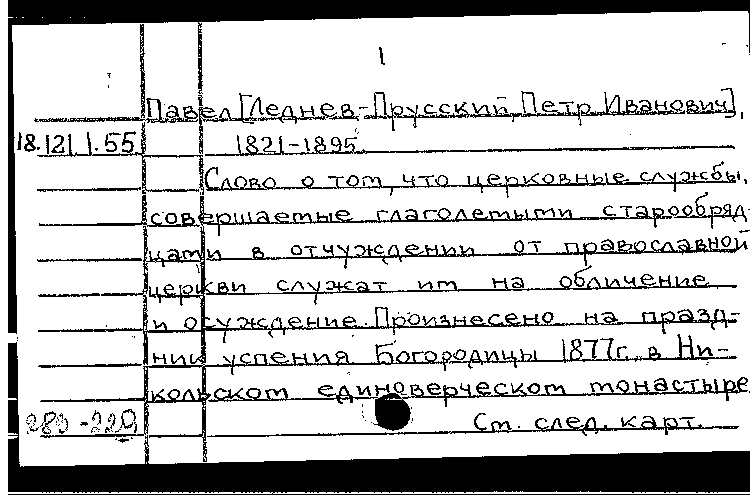 1
Павел [Леднев-Прусский, Петр Иванович],
18.121.1.55 1821-1895.
Слово о том, что церковные службы,
совершаемые глаголемыми старообряд-
цами в отчуждении от православной
церкви служат им на обличение
и осуждение. Произнесено на празд-
ник успения Богородицы 1877г. в Ни-
кольском единоверческом монастыре
См. след. карт.